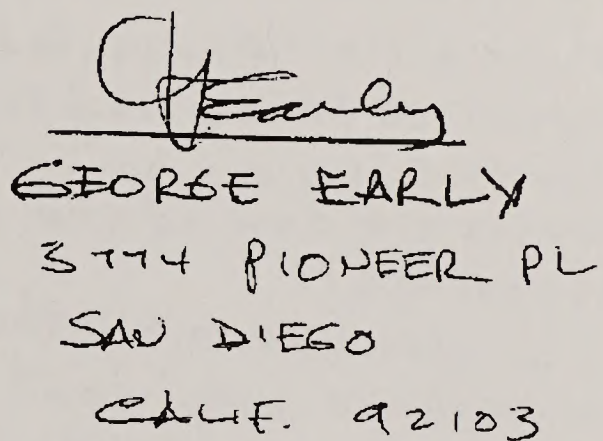 G Early
GEORGE EARLY
3774 PIONEER PL
SAN DIEGO
CALIF. 92103